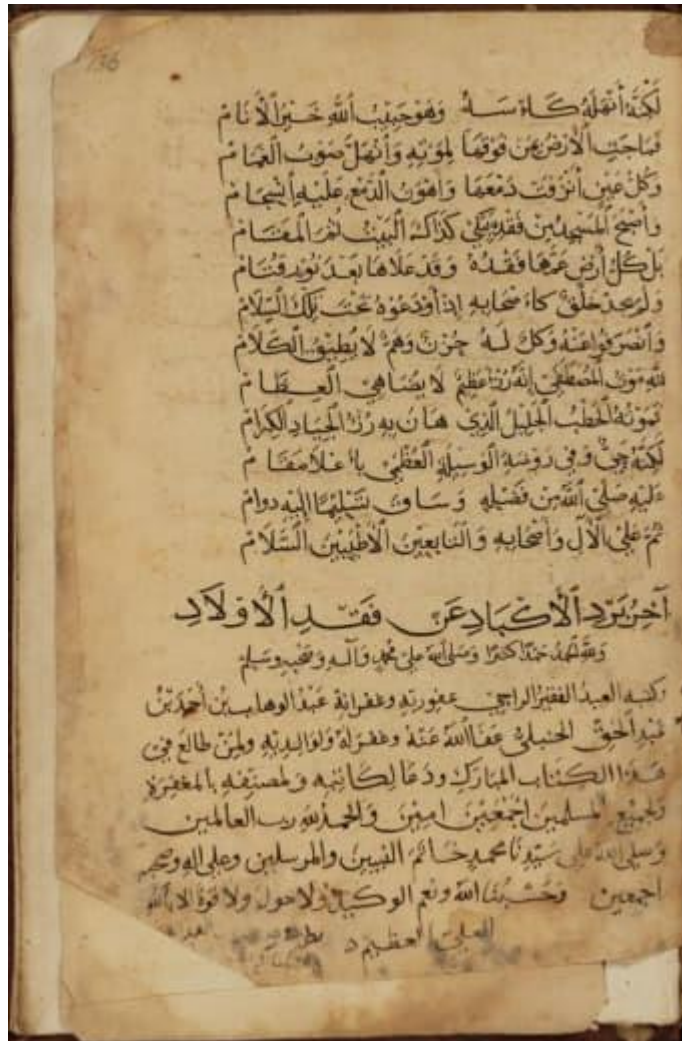 136
لكنه أنهله كاسه وهو حبيب الله خير الأنام
فماجت الأرض من فوقها لموته وأنهل صوب الغمام
وكل عين أنزفت دمعها وأهون الدمع عليه انسجام
وأضحى المسجدين فقده يبكي كذاك البيت ثم المقام
بل كل أرض عمها فقده وقد علاها بعد نور قتام
ولم يجد خلق كاصحابه إذ أودعوه تحت تلك السلام
وانصرفوا عنه وكل له حزن وهم لا يطيق الكلام
لله موت المصطفى إنه رزء عظيم لا يضاهي العظام
فموته الخطب الجليل الذي هان به رزء الجياد الكرام
لكنه حي وفي روضه الوسيلة العظمى بأعلا مقام
عليه صلى الله من فضله وساق تسليما إليه دوام
ثم على الآل وأصحابه والتابعين الأطيبين السلام
آخر برد الأكباد عن فقد الأولاد
ولله الحمد حمدا كثيرا وصلى الله على محمد وآله وصحبه وسلم
وكتبه العبد الفقير الراجي عفو ربه وغفرانه عبد الوهاب بن أحمد بن
عبد الحق الحنبلي عفا الله عنه وغفر له ولوالديه ولمن طالع في
هذا الكتاب المبارك ودعا لكاتبه ولمصنفه بالمغفرة
ولجميع المسلمين اجمعين امين والحمد لله رب العالمين
وصلى الله على سيدنا محمد خاتم النبيين والمرسلين وعلى اله وصحبه
اجمعين وحسبنا الله ونعم الوكيل ولا حول ولا قوة الا بالله
العلي العظيم